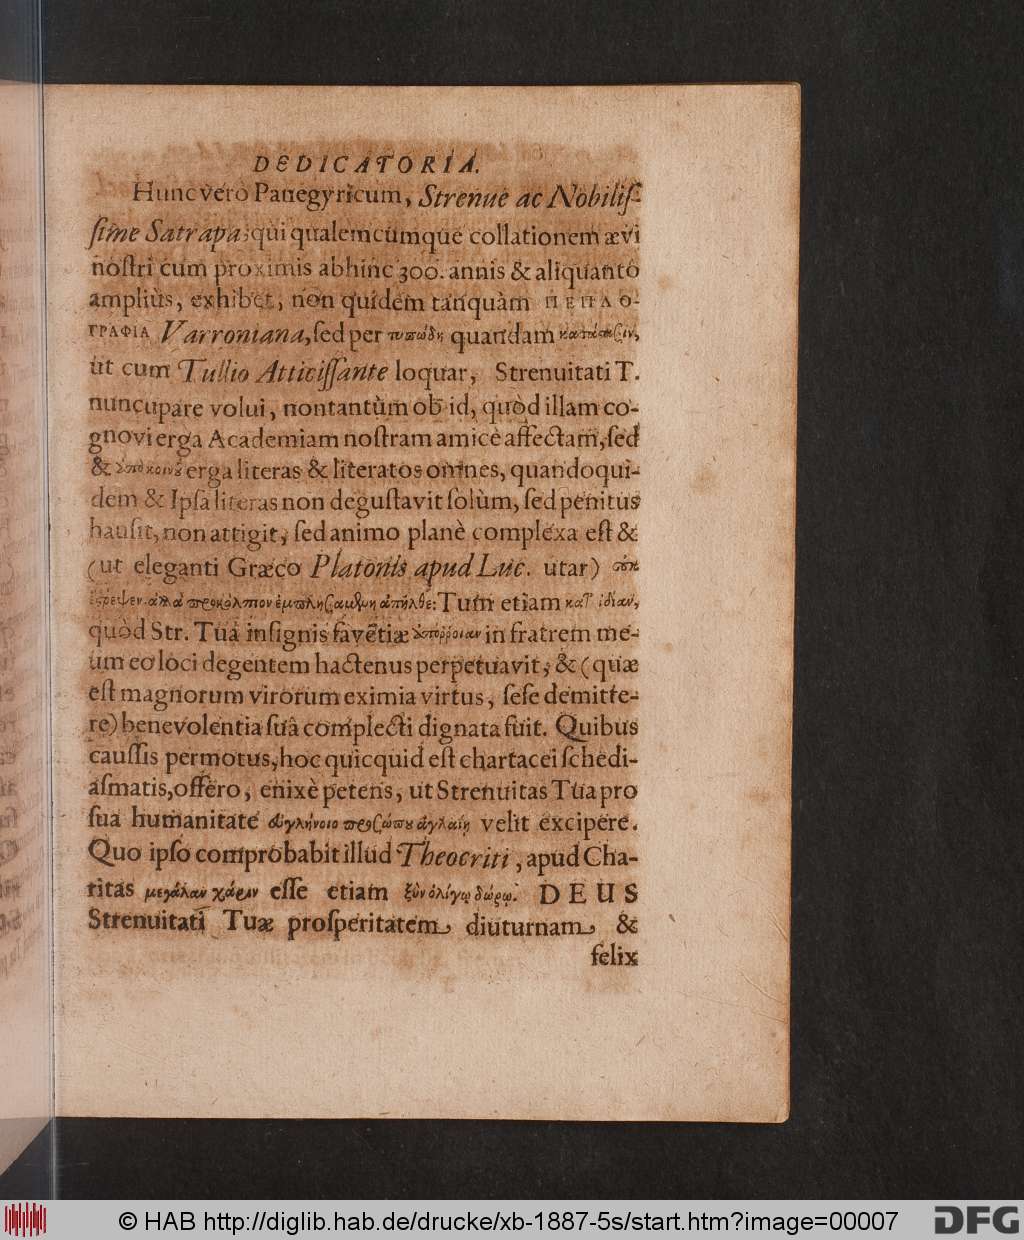 DEDICATORIA.
Hunc verò Panegyricum, Strenue ac Nobilis-
sime Satrapa; qui qualemcumque collationem ævi
nostri cum proximis abhinc 300. annis & aliquantò
ampliùs, exhibet, non quidem tanquàm ΠΕΠΛΟ-
ΓΡΑΦΙΑ Varroniana, sed per τυπώδη quandam
ut cum Tullio Atticissante loquar, Strenuitati T.
nuncupare volui, non tantùm ob id, quòd illam co-
gnovi erga Academiam nostram amicè affectam, sed
& erga literas & literatos omnes, quandoqui-
dem & Ipsa literas non degustavit solùm, sed penitus
hausit, non attigit, sed animo planè complexa est &
(ut eleganti Græco Platonis apud Luc. utar)
ἀπῆλθε: Tum etiam κατ' ἰδίαν,
quòd Str. Tua insignis favẽtiæ in fratrem me-
um eo loci degentem hactenus perpetuavit, & (quæ
est magnorum virorum eximia virtus, sese demitte-
re) benevolentia suâ complecti dignata fuit. Quibus
caussis permotus, hoc quicquid est chartacei schedi-
asmatis, offero, enixè petens, ut Strenuitas Tua pro
sua humanitate velit excipere.
Quo ipso comprobabit illud Theocriti, apud Cha-
ritas μεγάλαν χάριν esse etiam ξὺν ὀλίγῳ δώρῳ. DEUS
Strenuitati Tuæ prosperitatem diuturnam &
felix
© HAB http://diglib.hab.de/drucke/xb-1887-5s/start.htm?image=00007
DFG